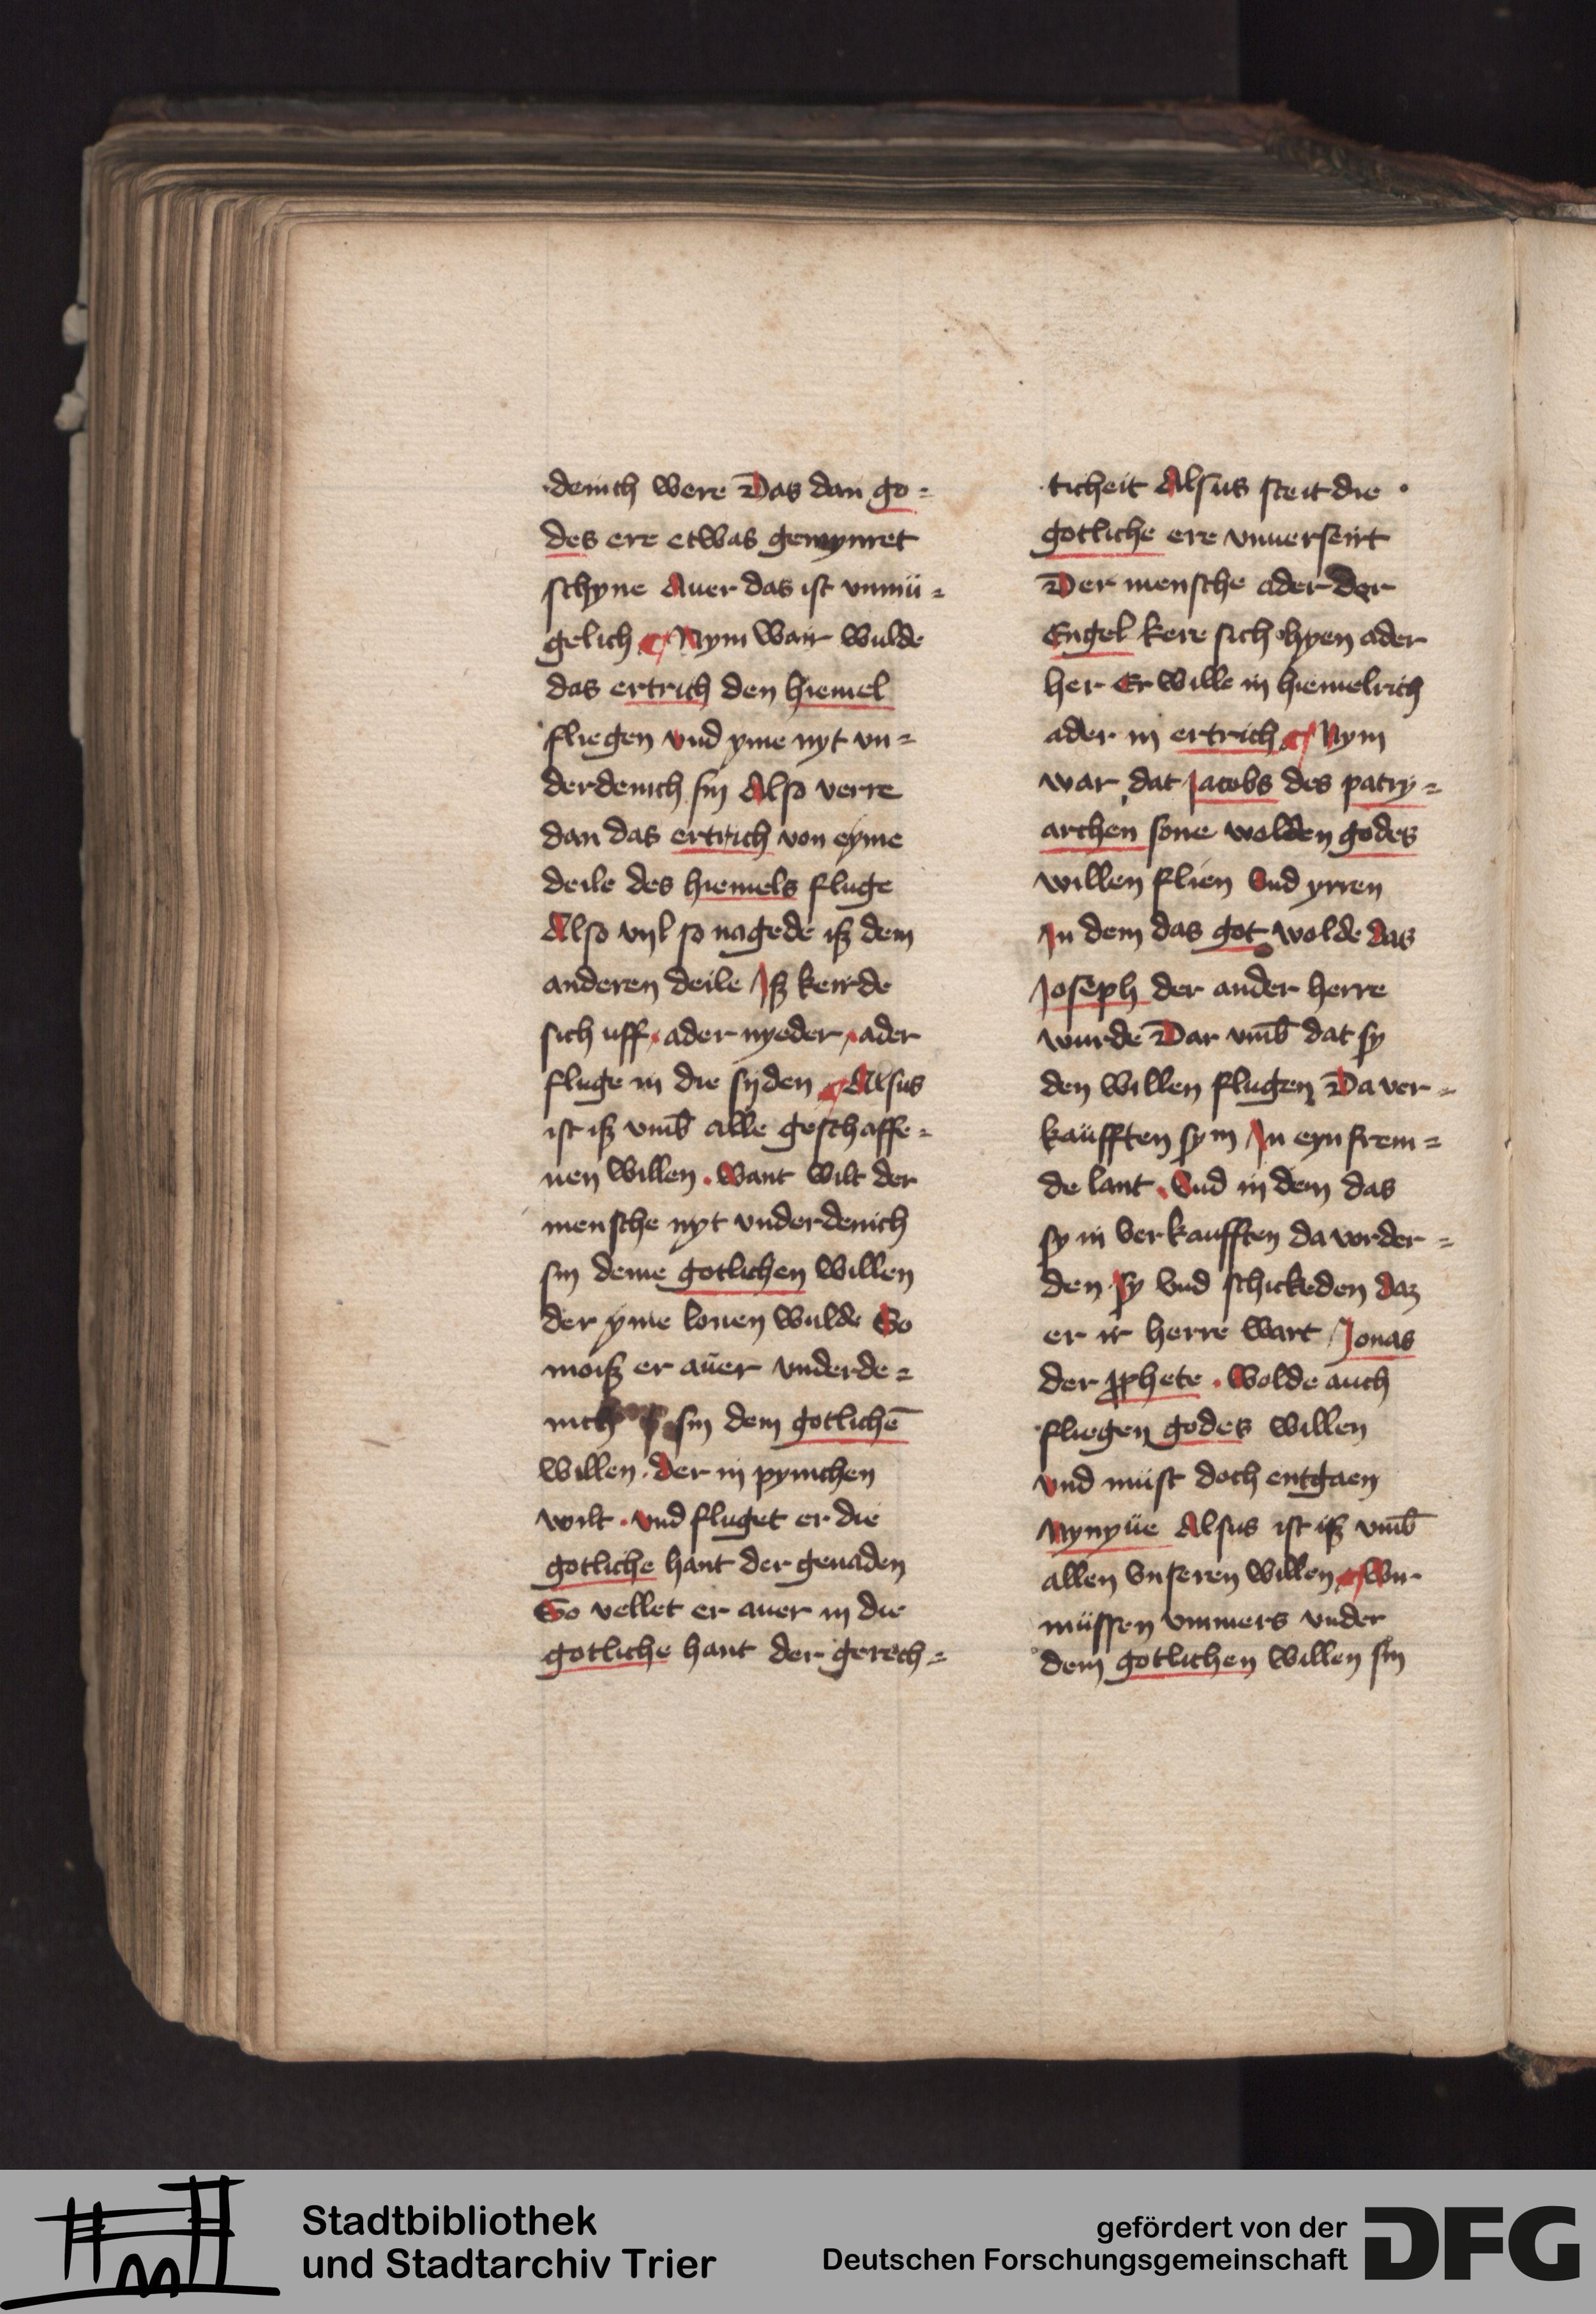 denich were Das dan go=
des ere etwas gemynret
schyne Auer das ist vnmü=
gelich Nym wair wulde
das ertrich den hiemel
fliegen vnd yme nyt vn=
derdenich sin Also verre
dan das ertrich von eyme
deile des hiemels fluge
Also vyl so nagede iß dem
anderen deile Jß keirde
sich uff ader nyeder ader
fluge in die syden Alsus
ist iß vmb̄ alle geschaffe=
nen willen . Want wilt der
mensche nyt vnderdenich
sin deme gotlichen willen
der yme lonen wulde So
moiß er aüer vnderde=
nich sin dem gotlichē
willen . der in pynichen
wilt . vnd fluget er die
gotliche hant der genaden
So vellet er auer in die
gotliche hant der gerech=
ticheit Alsus steit die .
gotliche ere vnuerseirt
Der mensche ader der
Engel kere sich hyen ader
her Er wille in hiemelrich
ader in ertrich Nym
war dat Jacobs des patry=
archen sone wolden godes
willen flien Vnd yrren
Jn dem das got wolde das
Joseph der ander herre
wurde Dar vmb̄ dat sy
den willen flugen Da ver=
kaüfften sy in Jn eyn frem=
de lant . Vnd in dem das
sy in verkaufften da vorder=
den sy vnd schickeden daz
er ir herre wart Jonas
der ꝓphete . Wolde auch
fliegen godes willen
vnd müst doch entgaen
Nynyüe Alsus ist iß vmb̄
allen vnseren willen Wir
müssen vmmers vnder
dem gotlichen willen sin
Stadtbibliothek
und Stadtarchiv Trier
gefördert von der
Deutschen Forschungsgemeinschaft
DFG